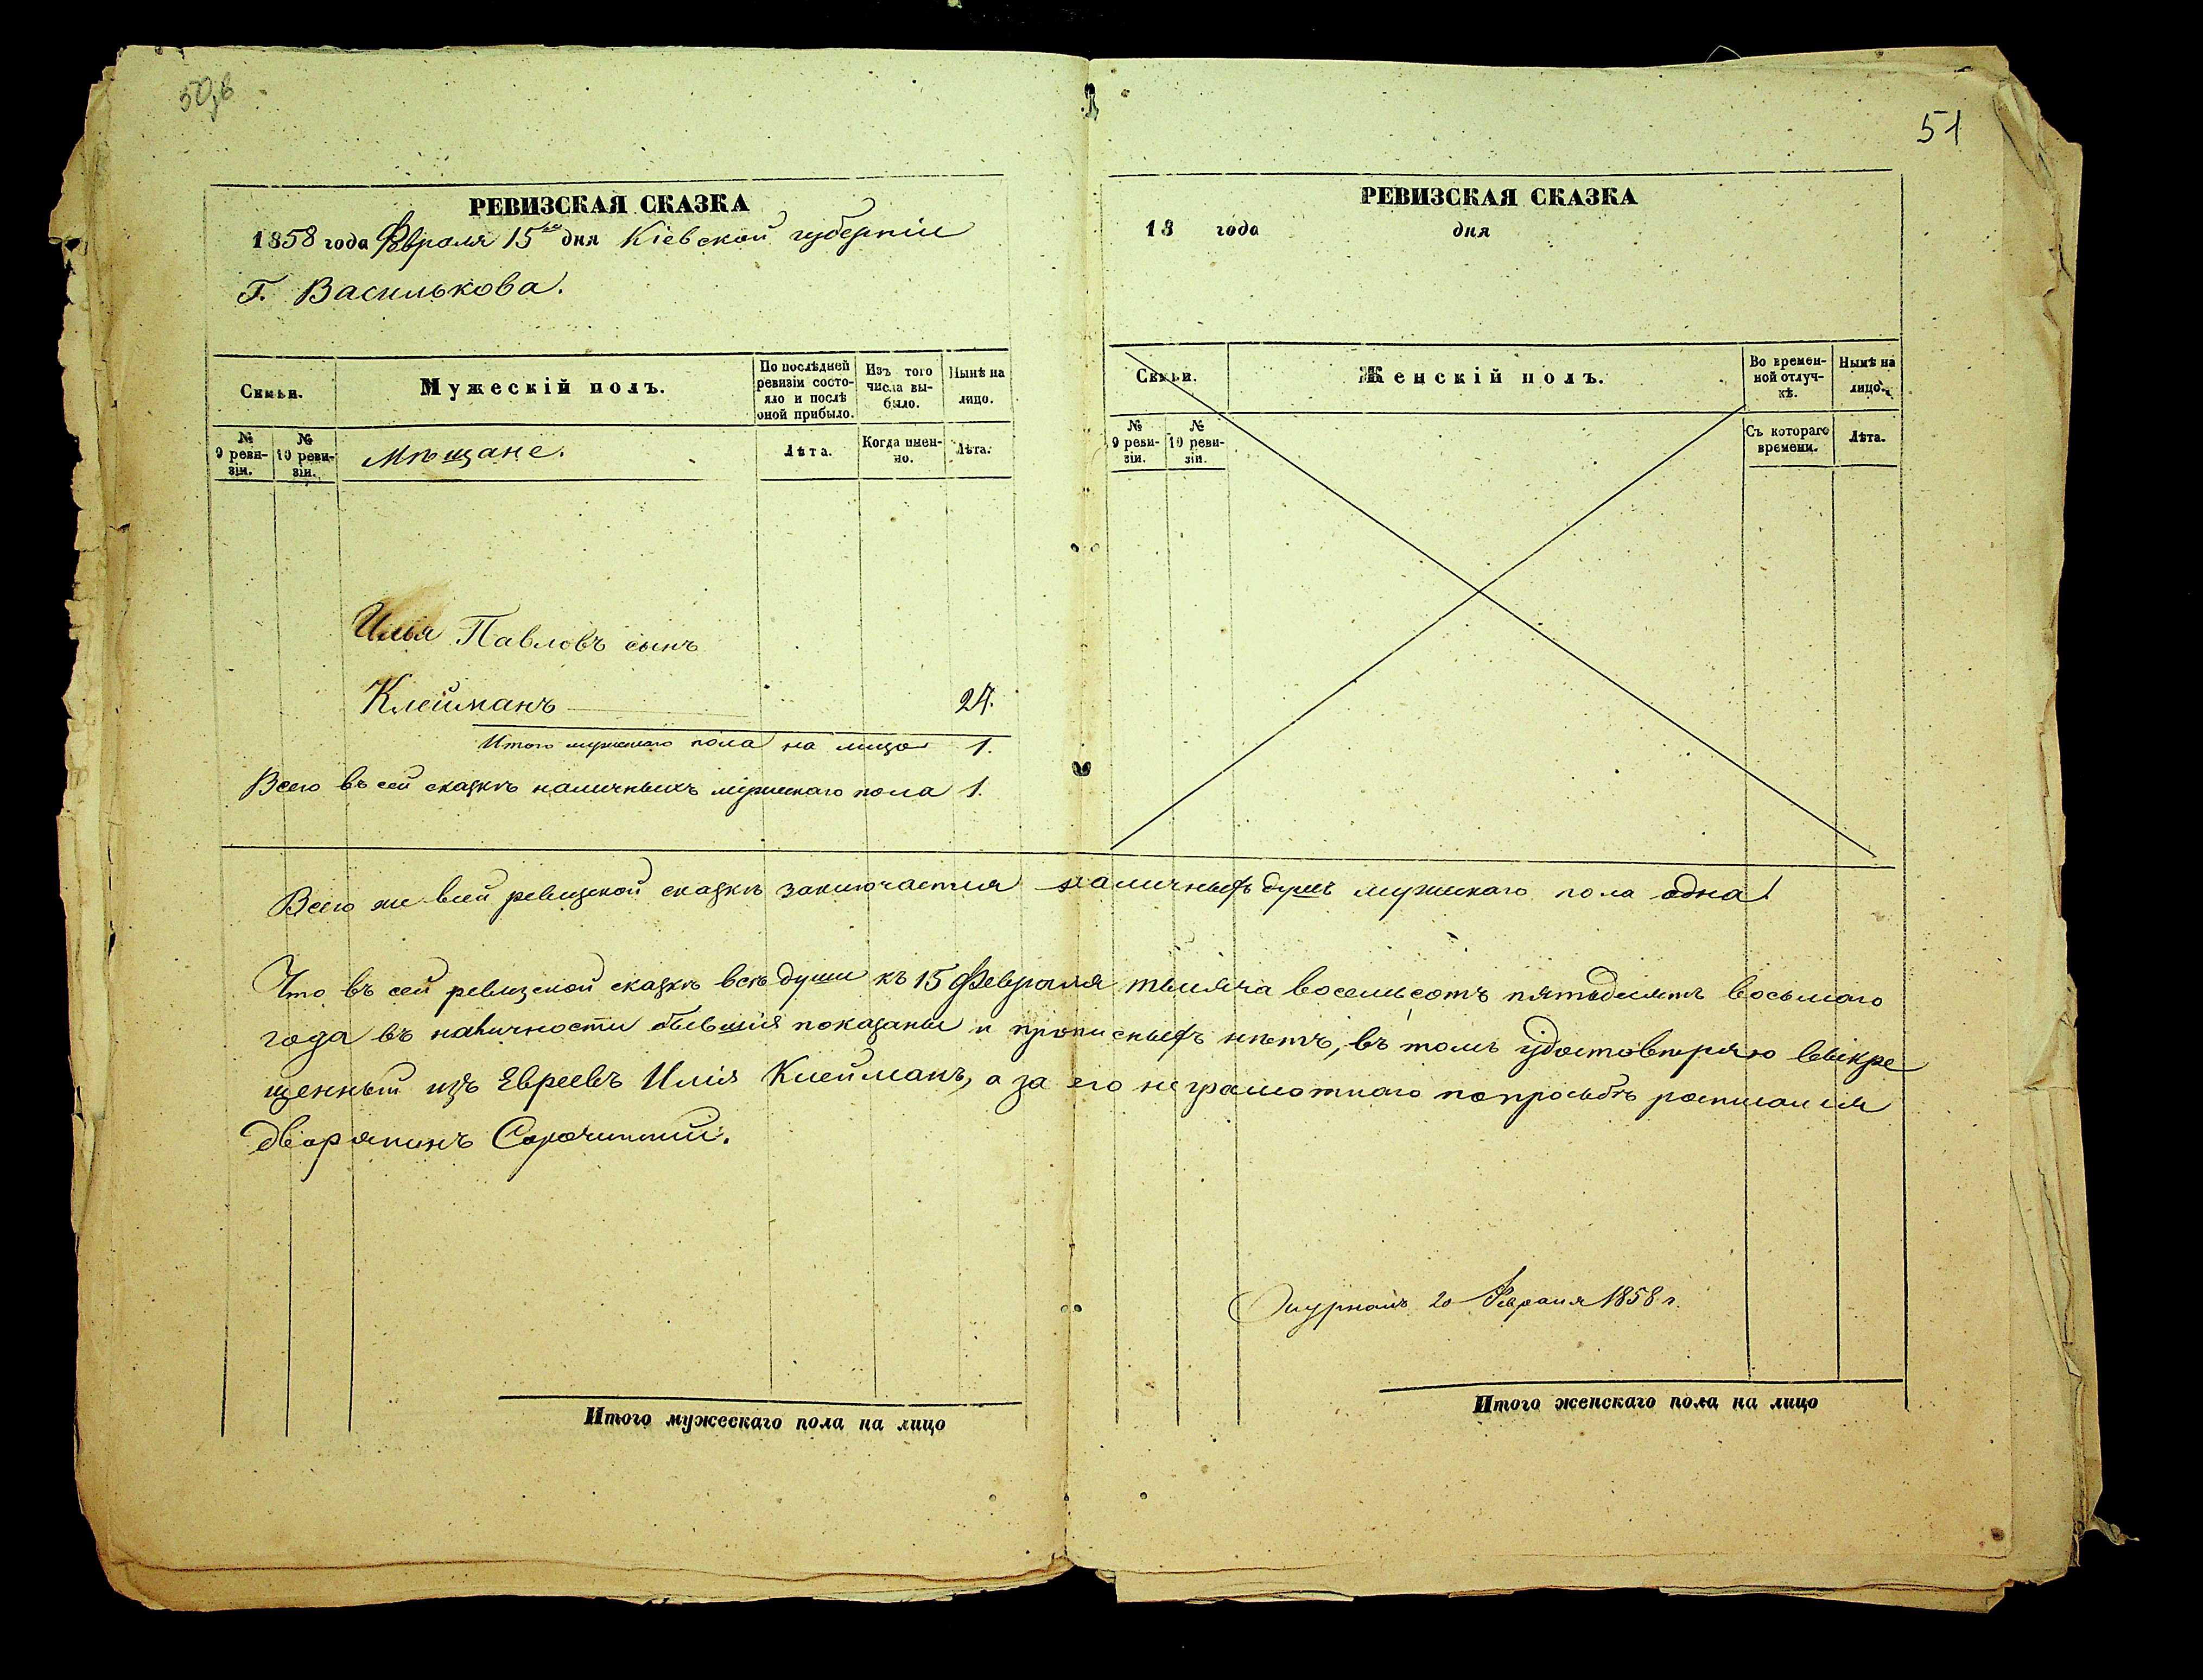 50в
51
РЕВИЗСКАЯ СКАЗКА
1858 года Февраля 15го дня Кіевской губерніи
Г. Василькова.
Семьи.
Мужескій полъ.
По послѣдней ревизіи состояло и послѣ оной прибыло.
Изъ того числа выбыло.
Нынѣ на лицо.
№ 9 ревизіи.
№ 10 ревизіи.
Мѣщане.
Лѣта.
Когда именно.
Лѣта.
Илья Павловъ сынъ
Клейманъ 24.
Итого мужескаго пола на лицо 1.
Всего въ сей сказкѣ наличныхъ мужескаго пола 1.
РЕВИЗСКАЯ СКАЗКА
18 года дня
Семьи.
Женскій полъ.
Во временной отлучкѣ.
Нынѣ на лицо.
№ 9 ревизіи.
№ 10 ревизіи.
Съ котораго времени.
Лѣта.
Всего же всей ревизской сказкѣ заключается наличныхъ душъ мужскаго пола одна.
Что въ сей ревизской сказкѣ всѣ души къ 15 Февраля тысяча восемьсотъ пятьдесятъ восьмаго
года въ наличности бывшія показаны и прописныхъ нѣтъ, въ томъ удостовѣряю выкре
щенный изъ Евреевъ Илія Клейманъ, а за его неграмотнаго попросьбѣ росписался
дворянинъ
20 Февраля 1858 г.
Итого мужескаго пола на лицо
Итого женскаго пола на лицо